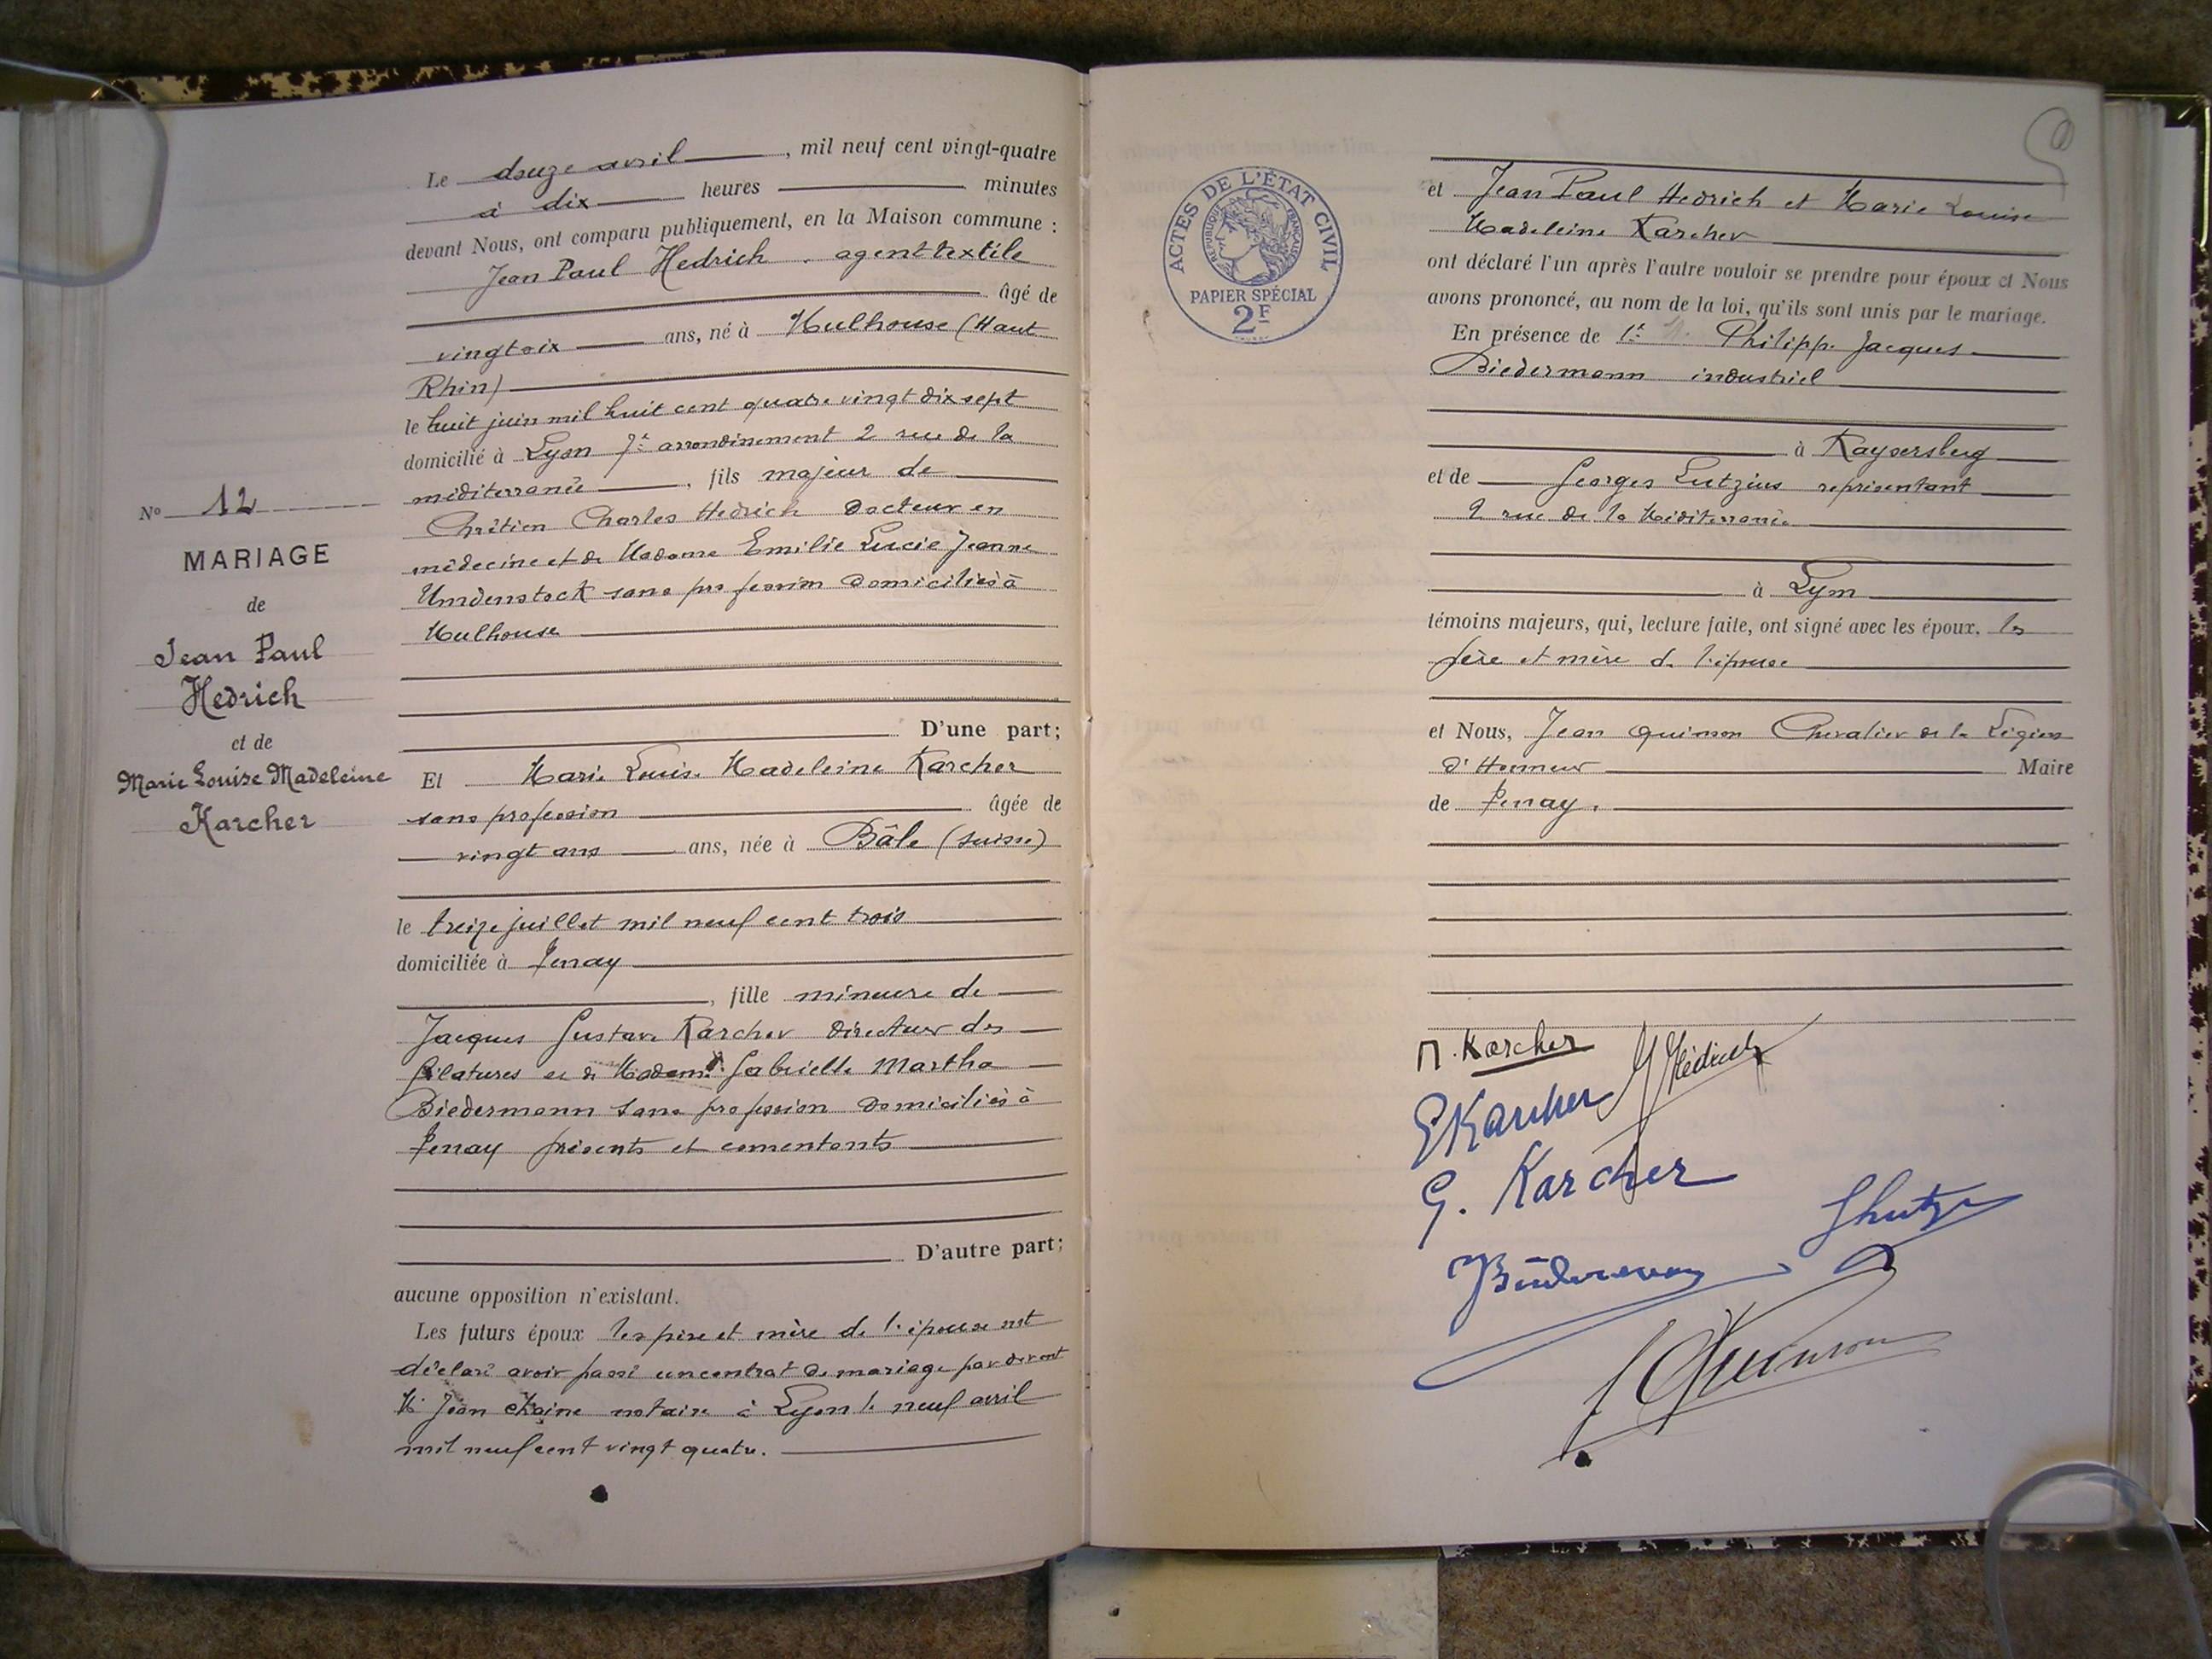 Le douze avril, mil neuf cent vingt-quatre
à dix heures minutes
devant Nous, ont comparu publiquement, en la Maison commune :
Jean Paul Hedrich. agent textile
âgé de
vingt six ans, né à Mulhouse (Haut
Rhin)
le huit juin mil huit cent quatre vingt dix sept
domicilié à Lyon 7e arrondissement 2 rue de la
méditerranée, fils majeur de
Chrétien Charles Hedrich Docteur en
médecine et de Madame Emilie Lucie Jeanne
Umdenstock sans profession domiciliés à
Mulhouse
D'une part;
No 12
MARIAGE
de
Jean Paul
Hedrich
et de
Marie Louise Madeleine
Karcher
Et Marie Louise Madeleine Karcher
sans profession âgée de
vingt ans ans, née à Bâle (suisse)
le treize juillet mil neuf cent trois
domiciliée à Tenay
, fille mineure de
Jacques Gustave Karcher directeur des
filatures et de Madame Gabrielle Martha
Biedermann sans profession domiciliés à
Tenay présents et consentants
D'autre part;
aucune opposition n'existant.
Les futurs époux les père et mère de l'épouse ont
déclaré avoir passé un contrat de mariage par devant
Me Jean Chaine notaire à Lyon le neuf avril
mil neuf cent vingt quatre.
ACTES DE L'ÉTAT CIVIL
RÉPUBLIQUE FRANÇAISE
PAPIER SPÉCIAL
2F
et Jean Paul Hedrich et Marie Louise
Madeleine Karcher
ont déclaré l'un après l'autre vouloir se prendre pour époux et Nous
avons prononcé, au nom de la loi, qu'ils sont unis par le mariage.
En présence de 1e Philippe Jacques
Biedermann industriel
à Kaysersberg
et de Georges Lutzius représentant
2 rue de la Méditerranée
à Lyon
témoins majeurs, qui, lecture faite, ont signé avec les époux, les
père et mère de l'épouse
et Nous, Jean Quinson Chevalier de la Légion
d'Honneur Maire
de Tenay.
M. Karcher
Hédrich
Karcher
G. Karcher
Quinson